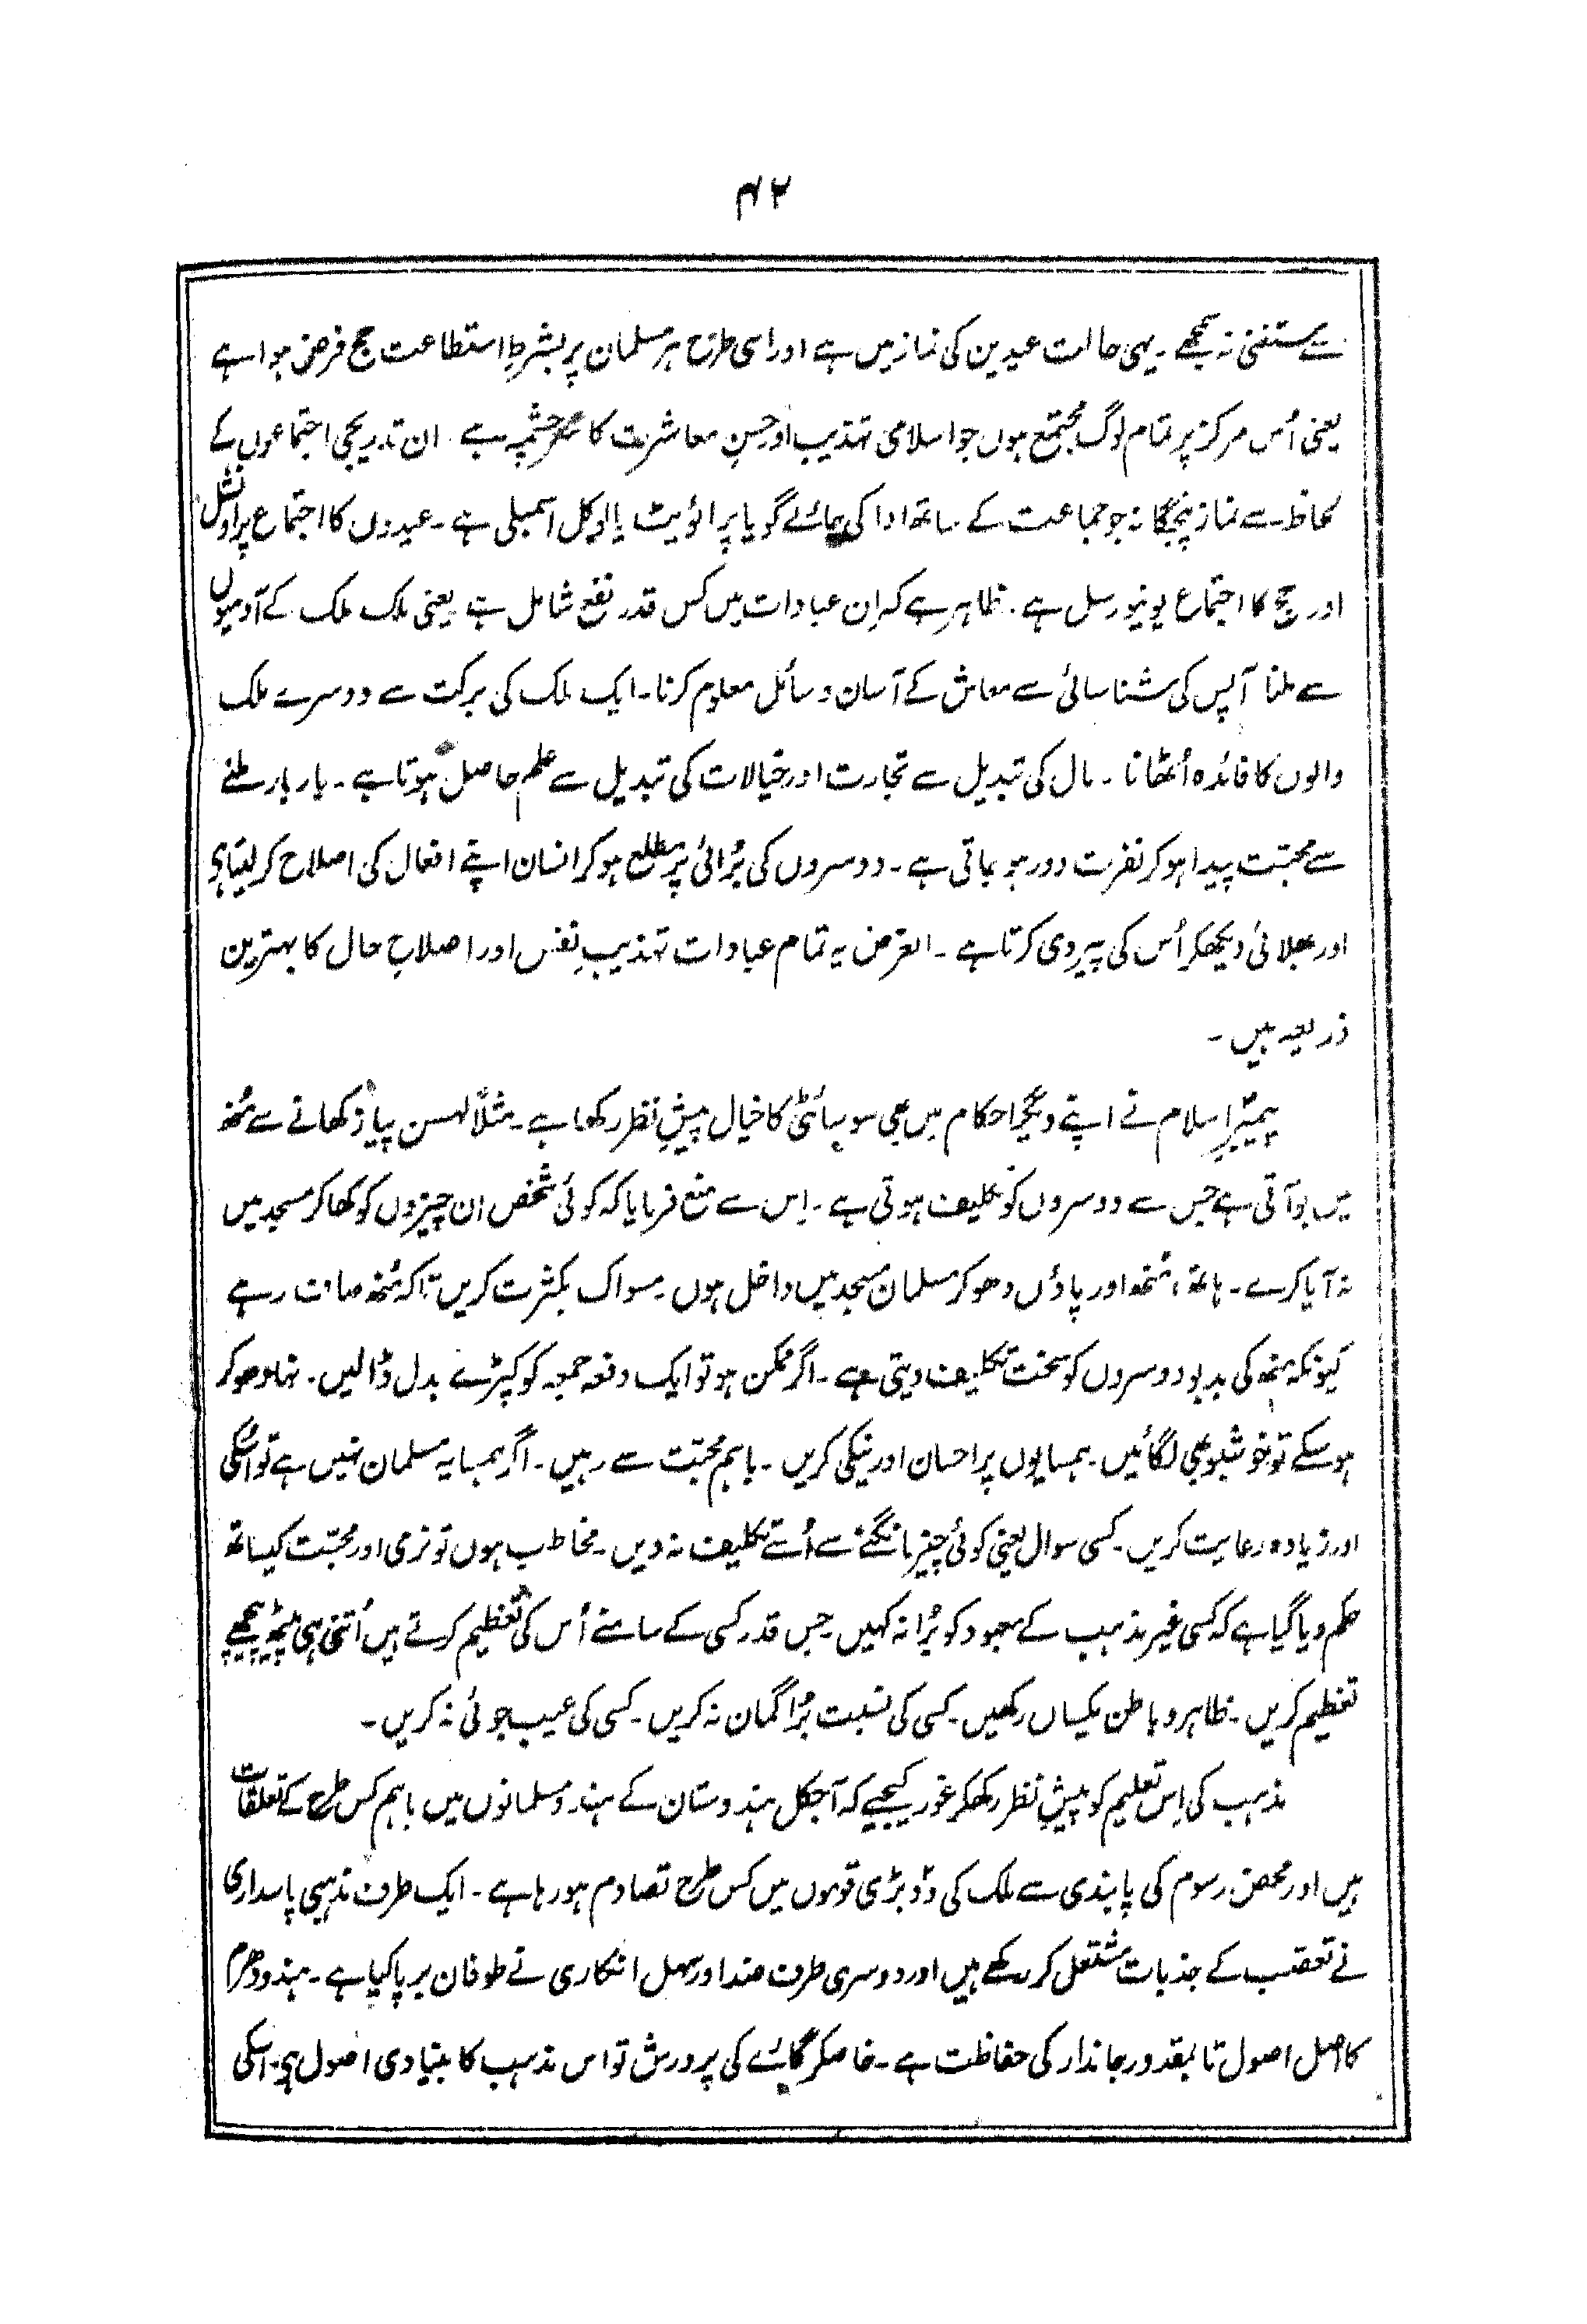 ۴۲
سے مستغنی نہ سمجھے۔ یہی حالت عیدین کی نماز میں ہے اور اسی طرح ہر مسلمان پر بشرطِ استطاعت حج فرض ہوا ہے
یعنی اُس مرکز پر تمام لوگ مجتمع ہوں جو اسلامی تہذیب اور حسنِ معاشرت کا سرچشمہ ہے۔ ان تدریجی اجتماعوں کے
لحاظ سے نماز پنجگانہ جو جماعت کے ساتھ ادا کی جائے گویا پرائویٹ یا لوکل اسمبلی ہے۔ عیدوں کا اجتماع پراونشل
اور حج کا اجتماع یونیورسل ہے۔ ظاہر ہے کہ ان عبادات میں کس قدر نفع شامل ہے یعنی ملک ملک کے آدمیوں
سے ملنا آپس کی شناسائی سے معاش کے آسان وسائل معلوم کرنا۔ ایک ملک کی برکت سے دوسرے ملک
والوں کا فائدہ اُٹھانا۔ مال کی تبدیل سے تجارت اور خیالات کی تبدیل سے علم حاصل ہوتا ہے۔ بار بار ملنے
سے محبّت پیدا ہو کر نفرت دور ہو جاتی ہے۔ دوسروں کی بُرائی پر مطلع ہو کر انسان اپنے افعال کی اصلاح کر لیتا ہی
اور بھلائی دیکھکر اُس کی پیروی کرتا ہے۔ الغرض یہ تمام عبادات تہذیبِ نفس اور اصلاحِ حال کا بہترین
ذریعہ ہیں۔
پیمبّرِ اسلام نے اپنے دیگر احکام میں بھی سوسائٹی کا خیال پیشِ نظر رکھا ہے۔ مثلاً لہسن پیاز کھانے سے مُنھ
میں بو آتی ہے جس سے دوسروں کو تکلیف ہوتی ہے۔ اِس سے منع فرمایا کہ کوئی شخص ان چیزوں کو کھا کر مسجد میں
نہ آیا کرے۔ ہاتھ، مُنھ اور پاؤں دھو کر مسلمان مسجد میں داخل ہوں۔ مسواک بکثرت کریں تاکہ مُنھ صاف رہے
کیونکہ مُنھ کی بدبو دوسروں کو سخت تکلیف دیتی ہے۔ اگر ممکن ہو تو ایک دفعہ جمعہ کو کپڑے بدل ڈالیں۔ نہا دھو کر
ہو سکے تو خوشبو بھی لگائیں۔ ہمسایوں پر احسان اور نیکی کریں۔ باہم محبّت سے رہیں۔ اگر ہمسایہ مسلمان نہیں ہے تو اُسکی
اور زیادہ رعایت کریں۔ کسی سوال یعنی کوئی چیز مانگنے سے اُسے تکلیف نہ دیں۔ مخاطب ہوں تو نرمی اور محبّت کیساتھ
حکم دیا گیا ہے کہ کسی غیر مذہب کے معبود کو بُرا نہ کہیں۔ جس قدر کسی کے سامنے اُس کی تعظیم کرتے ہیں اُتنی ہی پیٹھ پیچھے
تعظیم کریں۔ ظاہر و باطن یکساں رکھیں۔ کسی کی نسبت بُرا گمان نہ کریں۔ کسی کی عیب جوئی نہ کریں۔
مذہب کی اِس تعلیم کو پیشِ نظر رکھکر غور کیجیے کہ آجکل ہندوستان کے ہندو مسلمانوں میں باہم کس طرح کے تعلقات
ہیں اور محض رسوم کی پابندی سے ملک کی دو بڑی قوموں میں کس طرح تصادم ہو رہا ہے۔ ایک طرف مذہبی پاسداری
نے تعصّب کے جذبات مشتعل کر رکھے ہیں اور دوسری طرف ضد اور سہل انکاری نے طوفان برپا کیا ہے۔ ہندو دھرم
کا اصل اصول تا بمقدور جاندار کی حفاظت ہے۔ خاصکر گائے کی پرورش تو اس مذہب کا بنیادی اصول ہی۔ اسکی